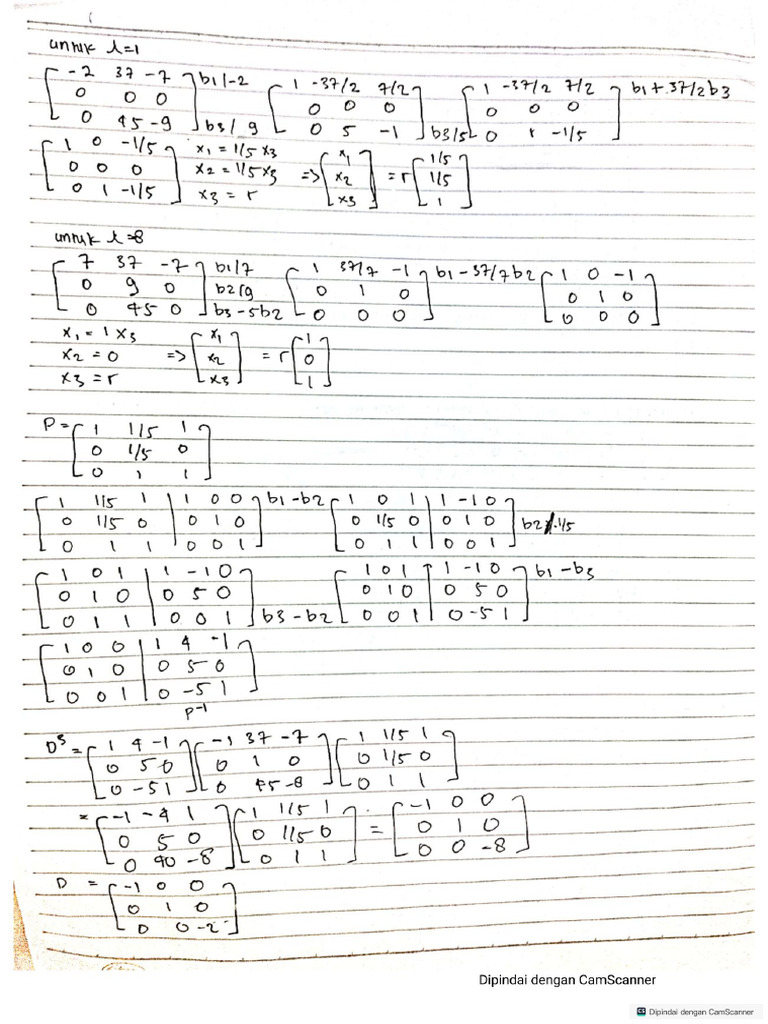 untuk λ=1
[-2 37 -7; 0 0 0; 0 45 -9] b1/-2 b3/9 [1 -37/2 7/2; 0 0 0; 0 5 -1] b3/5 [1 -37/2 7/2; 0 0 0; 0 1 -1/5] b1+37/2b3
[1 0 -1/5; 0 0 0; 0 1 -1/5] x1=1/5x3 x2=1/5x3 x3=r => [x1; x2; x3] = r [1/5; 1/5; 1]
untuk λ=-8
[7 37 -7; 0 9 0; 0 45 0] b1/7 b2/9 b3-5b2 [1 37/7 -1; 0 1 0; 0 0 0] b1-37/7b2 [1 0 -1; 0 1 0; 0 0 0]
x1=1x3
x2=0 => [x1; x2; x3] = r [1; 0; 1]
x3=r
P=[1 1/5 1; 0 1/5 0; 0 1 1]
[1 1/5 1 | 1 0 0; 0 1/5 0 | 0 1 0; 0 1 1 | 0 0 1] b1-b2 [1 0 1 | 1 -1 0; 0 1/5 0 | 0 1 0; 0 1 1 | 0 0 1] b2 . 1/5
[1 0 1 | 1 -1 0; 0 1 0 | 0 5 0; 0 1 1 | 0 0 1] b3-b2 [1 0 1 | 1 -1 0; 0 1 0 | 0 5 0; 0 0 1 | 0 -5 1] b1-b3
[1 0 0 | 1 4 -1; 0 1 0 | 0 5 0; 0 0 1 | 0 -5 1]
p-1
D3=[1 4 -1; 0 5 0; 0 -5 1][-1 37 -7; 0 1 0; 0 45 -8][1 1/5 1; 0 1/5 0; 0 1 1]
=[-1 -4 1; 0 5 0; 0 40 -8][1 1/5 1; 0 1/5 0; 0 1 1] = [-1 0 0; 0 1 0; 0 0 -8]
D = [-1 0 0; 0 1 0; 0 0 -2]
Dipindai dengan CamScanner
CS Dipindai dengan CamScanner